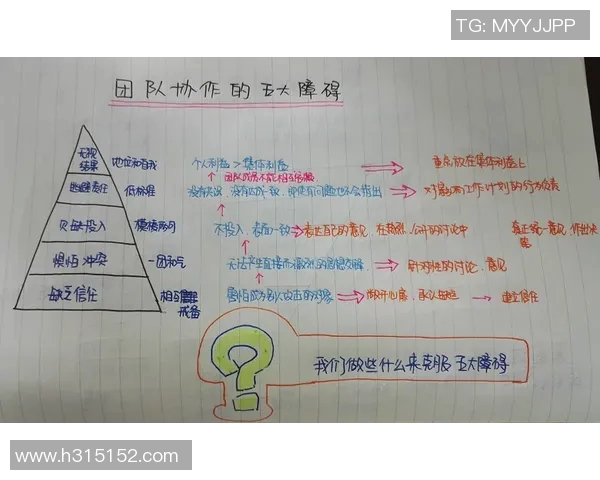 TG: MYYJJPP
团队协作的五大障碍
无视结果 地位和自我 个人利益>集体利益 重点放在集体利益上
团队成员不能相互
逃避责任 低标准 没有达成一致,即使有问题也不会指出 对影响工作计划的行为负责
欠缺投入 模棱两可 不投入,表面一致 表达自己的意见,在激烈、公开的讨论中 真正统一意见,作出决策
惧怕冲突 一团和气 无法产生直接而激烈的思想交锋 针对性的讨论、意见
缺乏信任 相互戒备 害怕成为别人攻击的对象 敞开心扉,承认 建立信任
我们做些什么来克服五大障碍
www.h315152.com